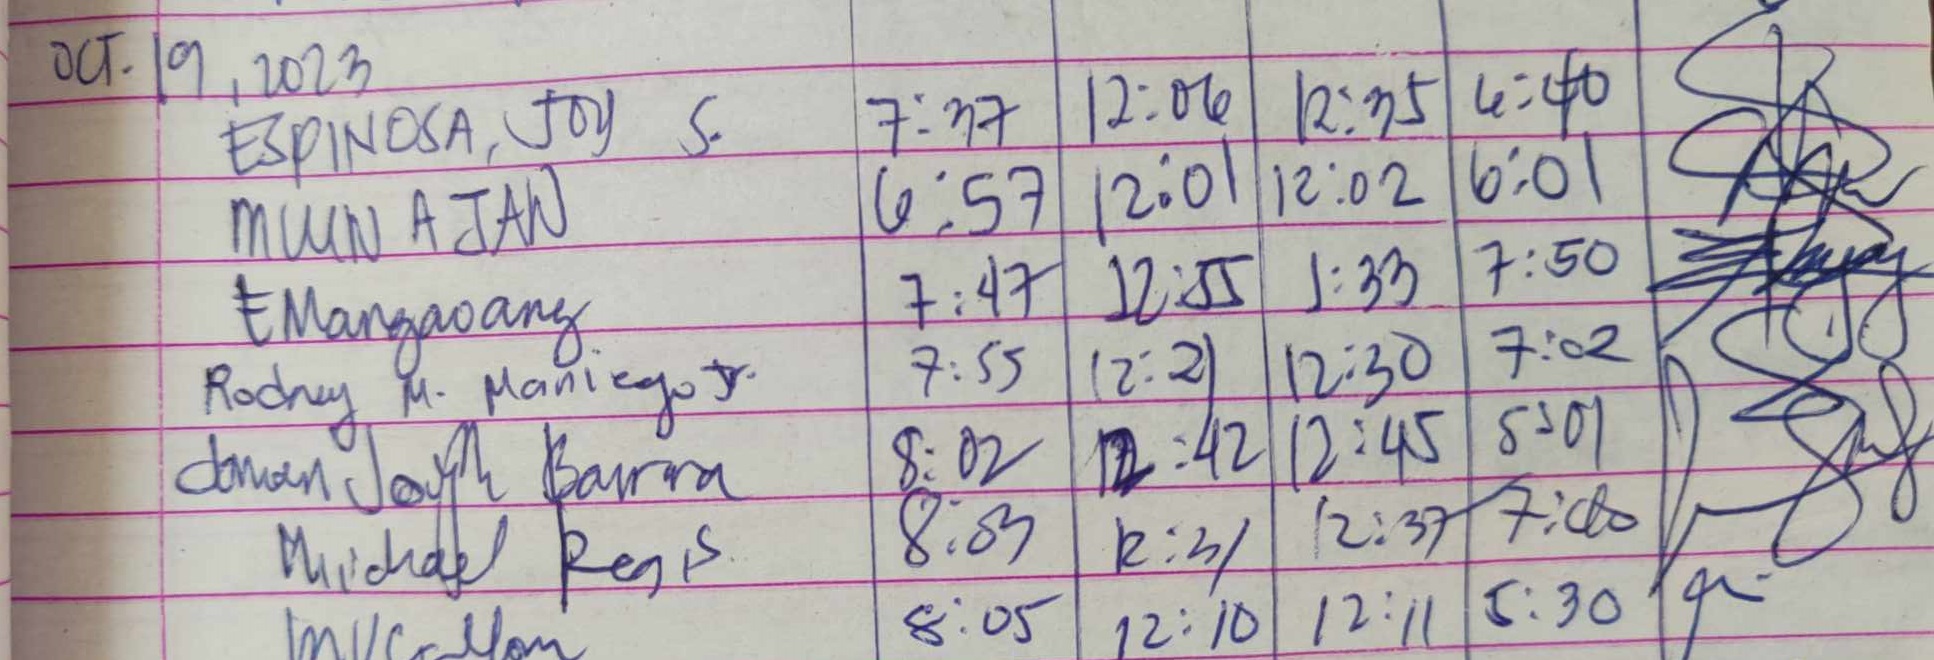 OCT. 19, 2023
ESPINOSA, JOY S. 7:37 12:06 12:35 6:40
MUUN A JAN 6:57 12:01 12:02 6:01
EMangaoang 7:47 12:55 1:33 7:50
Rodney M. Maniego Jr. 7:55 12:21 12:30 7:02
Joseph Barrra 8:02 12:42 12:45 5:01
Michael Regis 8:03 12:31 12:37
8:05 12:10 12:11 5:30